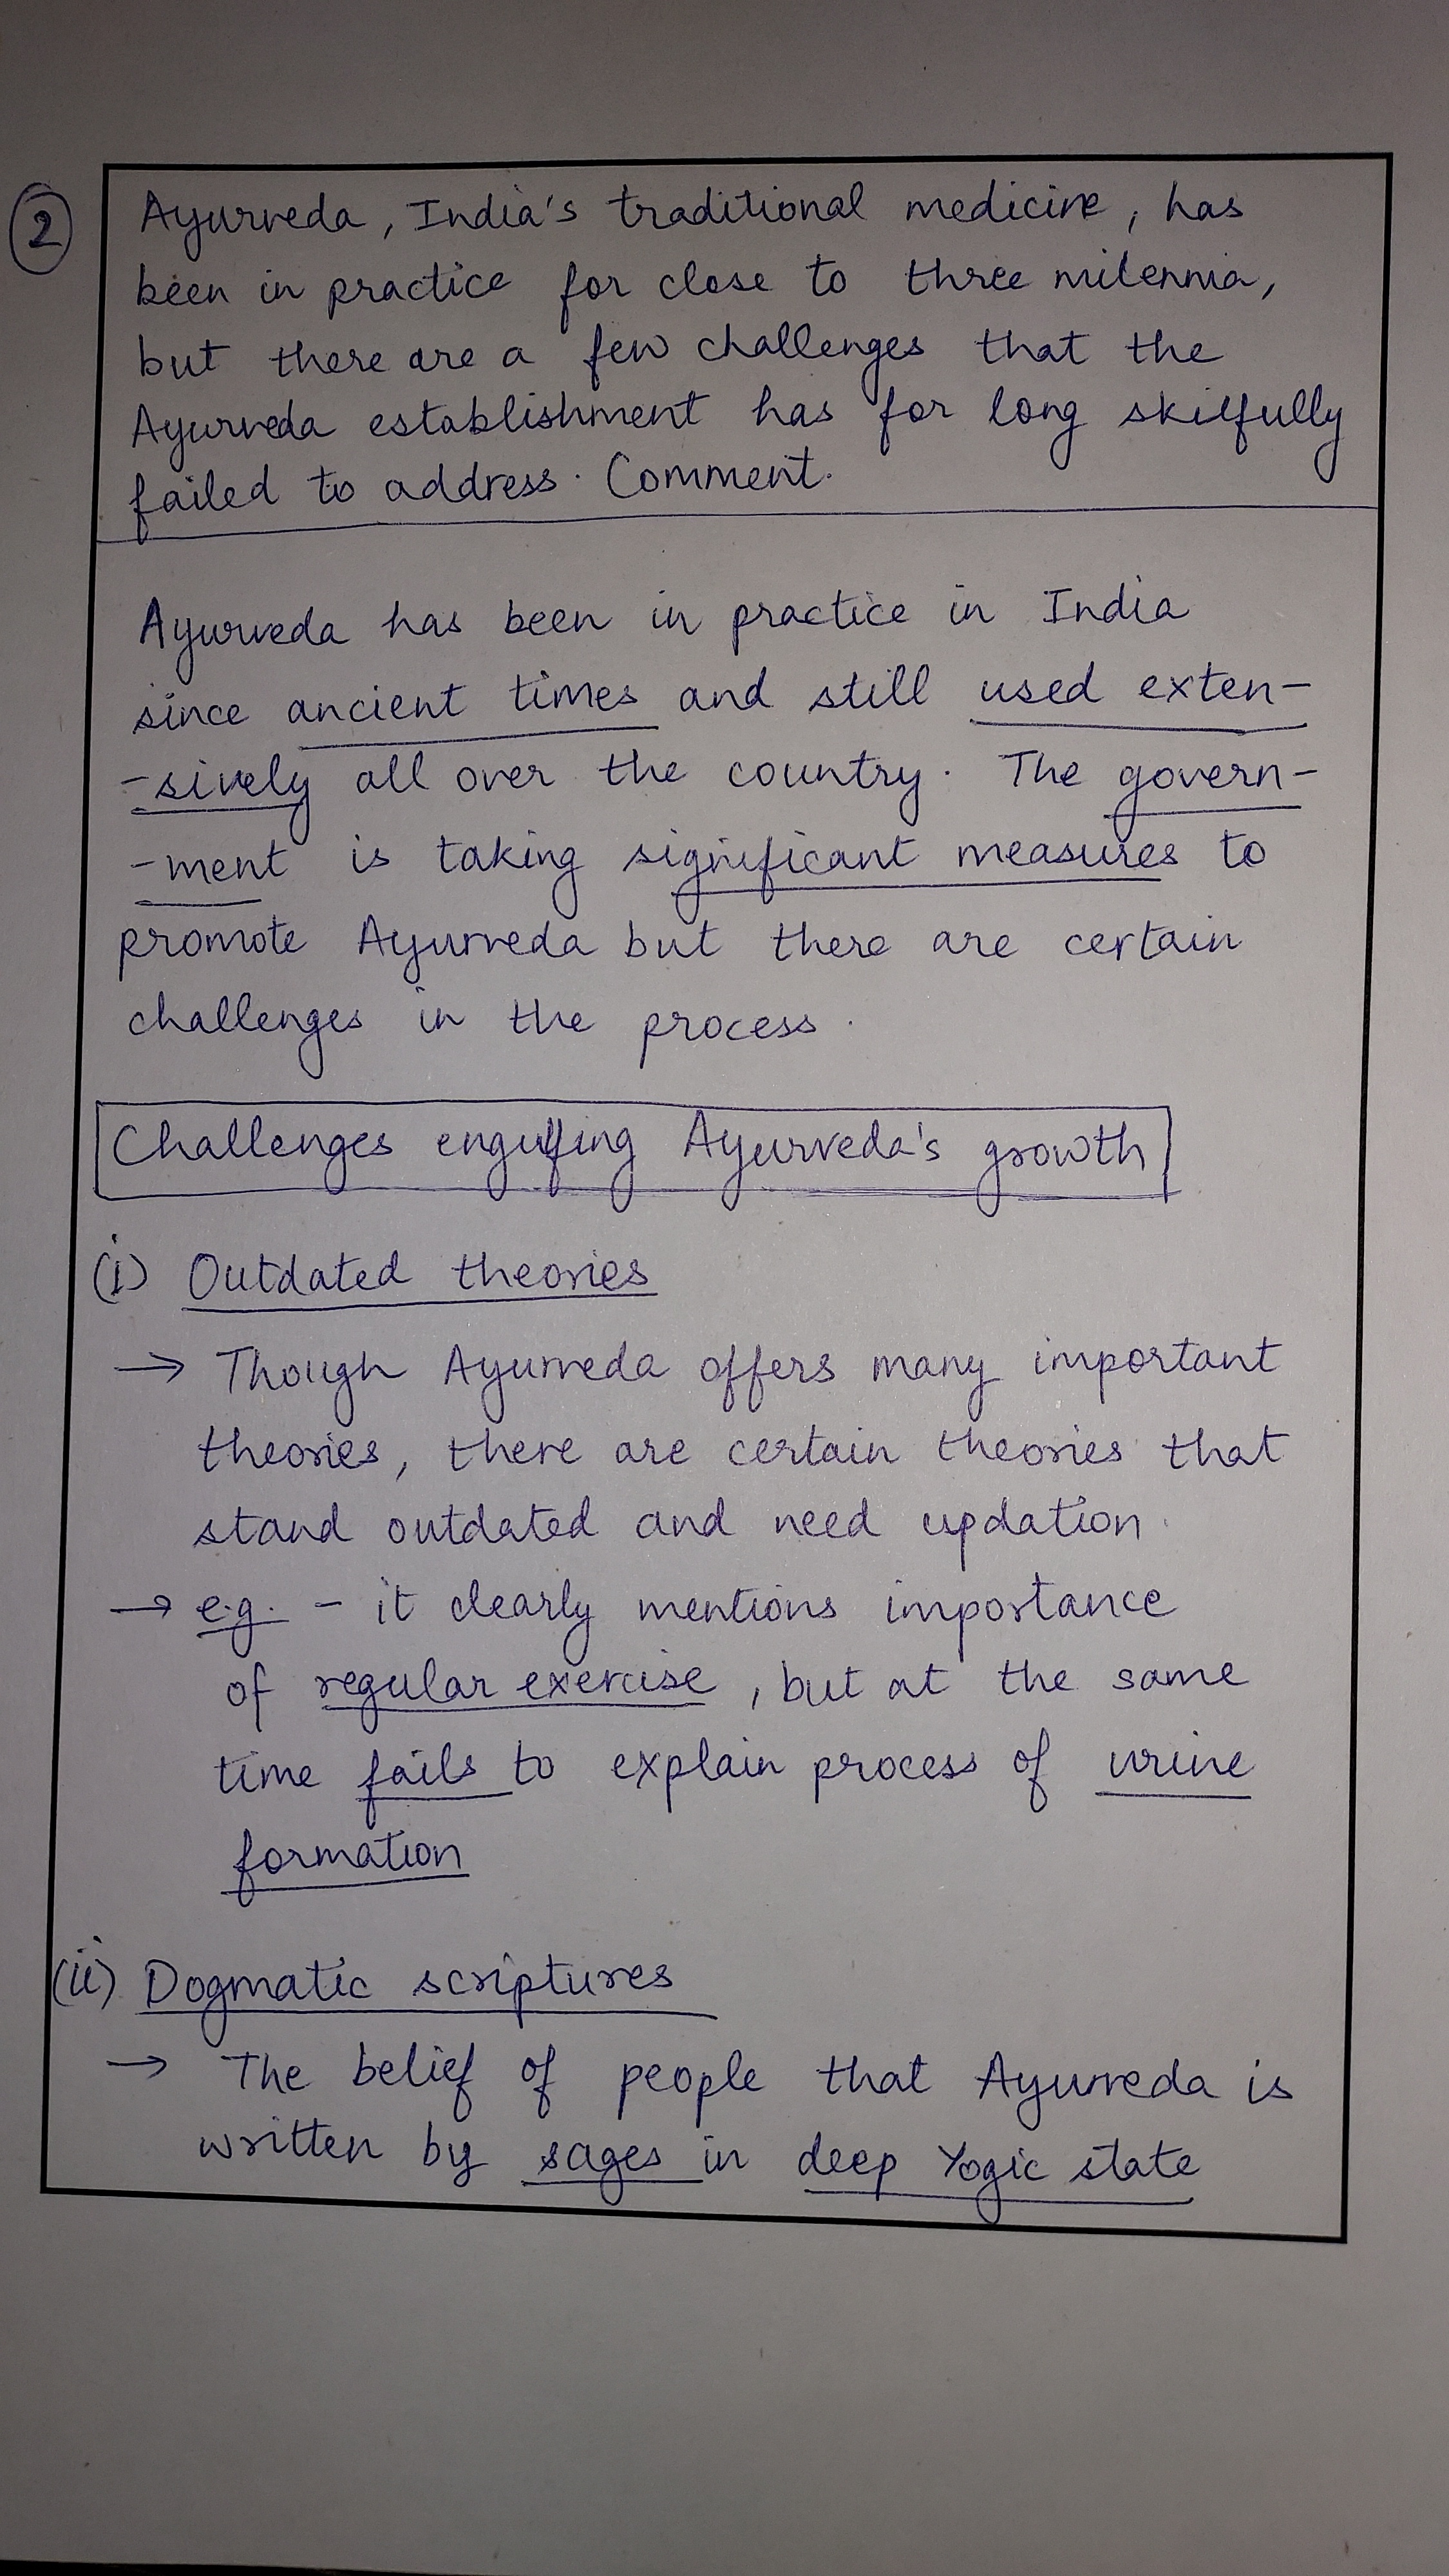 2
Ayurveda, India's traditional medicine, has
been in practice for close to three milennia,
but there are a few challenges that the
Ayurveda establishment has for long skilfully
failed to address. Comment.
Ayurveda has been in practice in India
since ancient times and still used exten-
-sively all over the country. The govern-
-ment is taking significant measures to
promote Ayurveda but there are certain
challenges in the process.
Challenges engulfing Ayurveda's growth
(i) Outdated theories
→ Though Ayurveda offers many important
theories, there are certain theories that
stand outdated and need updation.
→ e.g. - it clearly mentions importance
of regular exercise, but at the same
time fails to explain process of urine
formation
(ii) Dogmatic scriptures
→ The belief of people that Ayurveda is
written by sages in deep Yogic state